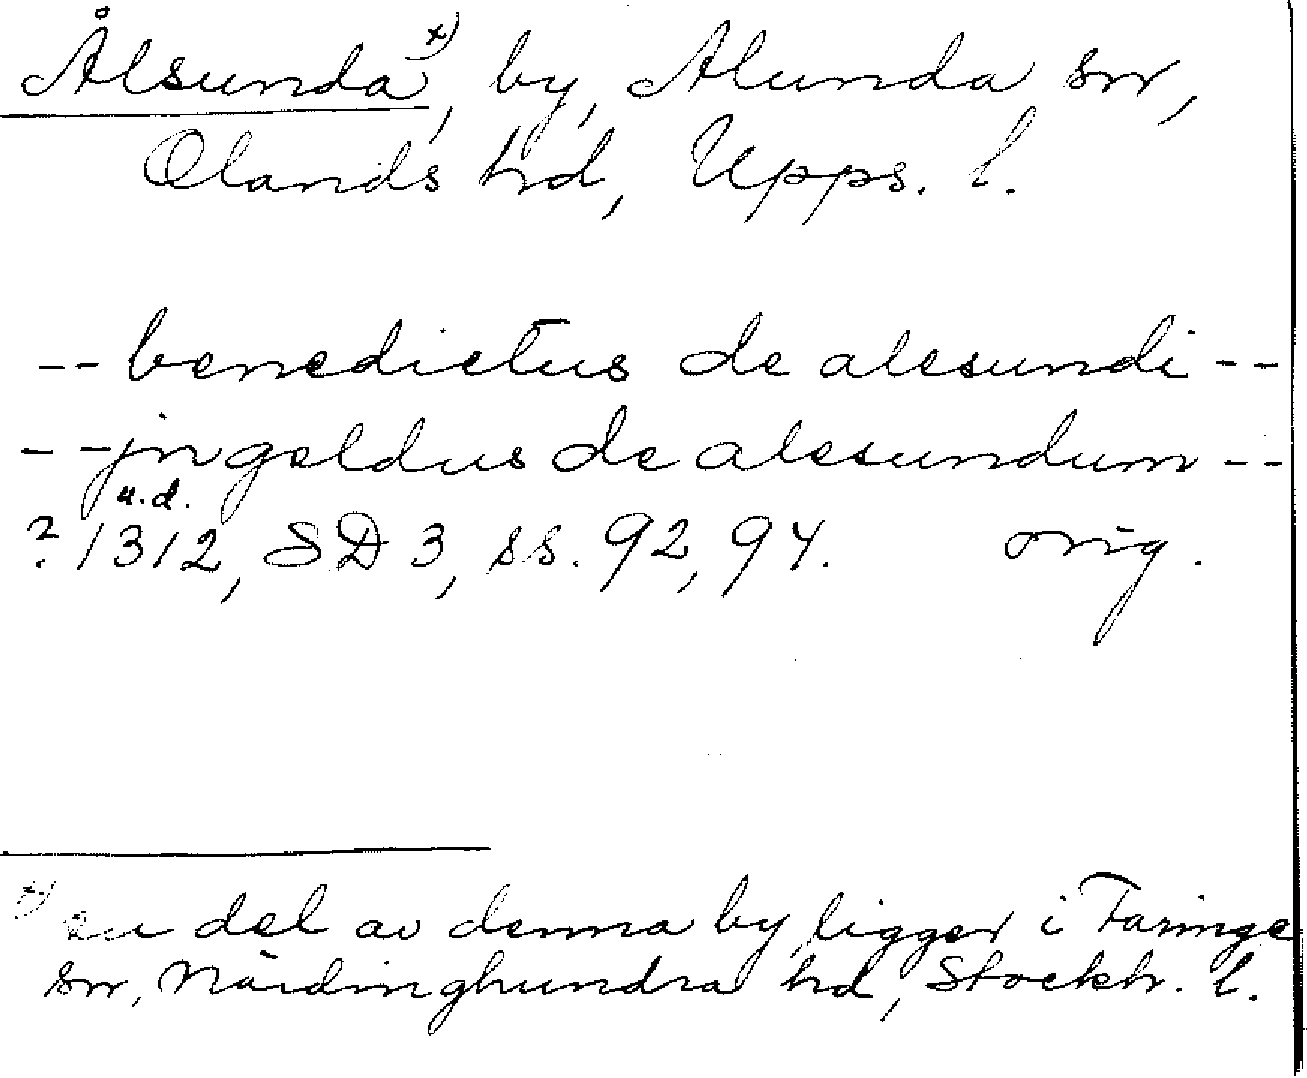 Ålsunda x), by, Alunda sn,
Olands hd, Upps. l.
-- benedictus de alesundi --
-- jngeldus de alesundum --
u.d.
? 1312, SD 3, ss. 92, 94. orig.
x) en del av denna by ligger i Faringe
sn, Närdinghundra hd, Stockh. l.